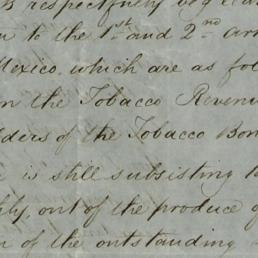 respectfully beg leave
to the 1st and 2nd
Mexico, which are as fol
on the Tobacco Revenu
lders of the Tobacco Bon
is still subsisting
bly, out of the produce of
of the outstanding